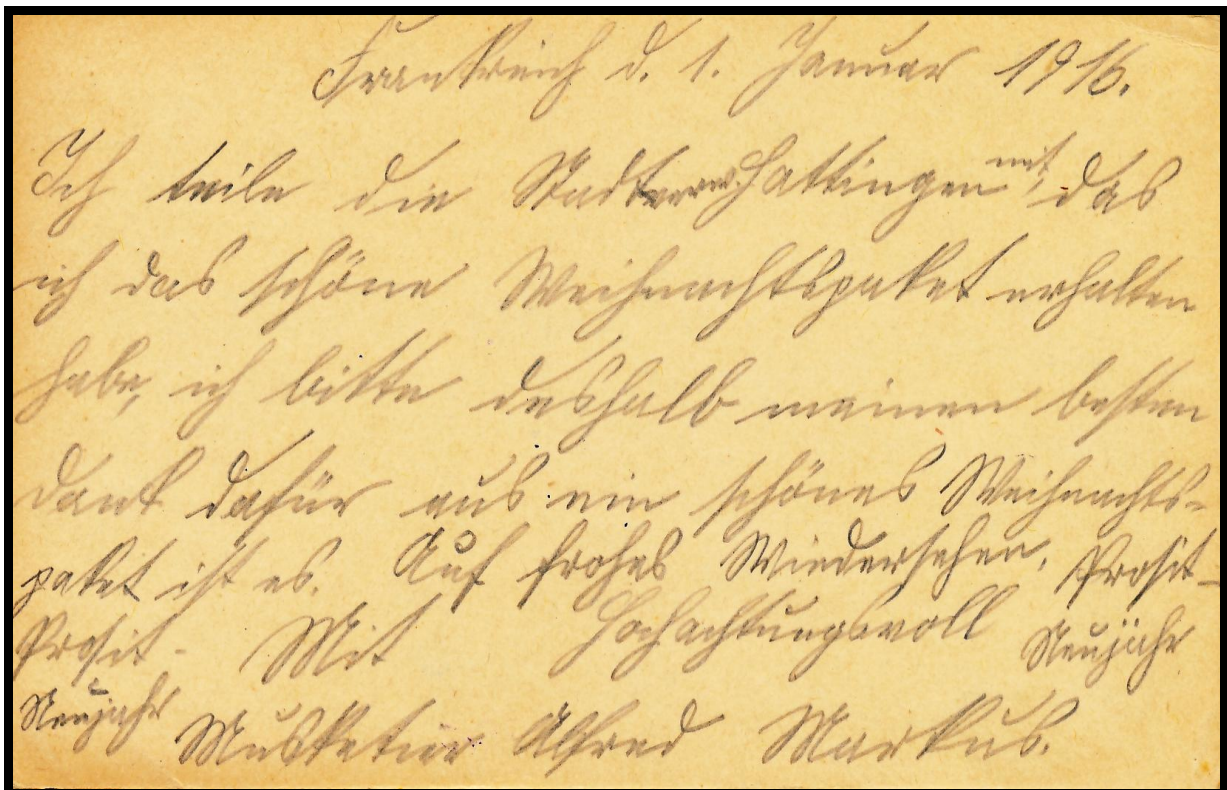 Frankreich d. 1. Januar 1916.
Ich teile die Stadtverw Hattingen mit, das
ich das schöne Weihnachtspaket erhalten
habe, ich bitte deshalb meinen besten
Dank dafür aus ein schönes Weihnachts-
paket ist es. Auf frohes Wiedersehen. Prosit-
Prosit- Mit Hochachtungsvoll Neujahr
Neujahr Musketier Alfred Markus.